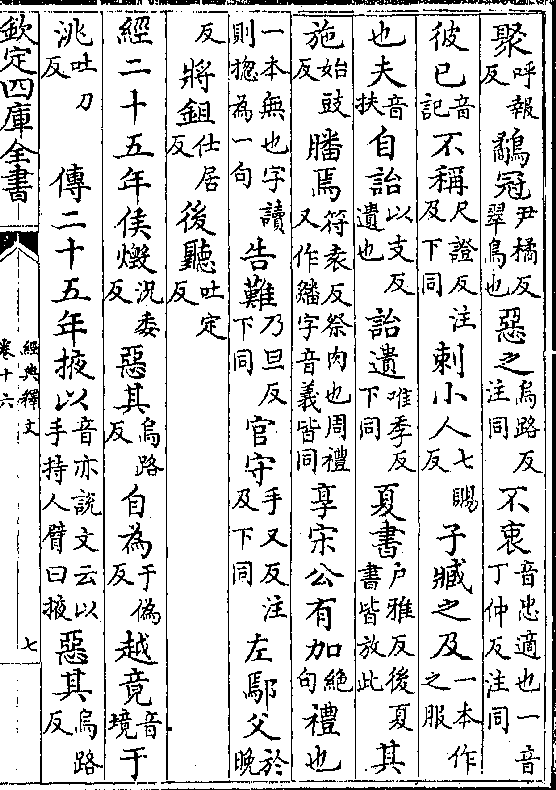 聚呼報反鷸冠尹橘反翠鳥也惡之烏路反注同不衷音忠適也一音丁仲反注同
彼已音記不稱尺證反注及下同刺小人七賜反子臧之及一本作之服
也夫音扶自詒以支反遺也詒遺唯季反下同夏書户雅反後夏書皆放此其
施始豉反膰焉符袁反祭肉也周禮又作䊩字音義皆同享宋公有加絶句禮也
一本無也字讀則揔為一句告難乃旦反下同官守手又反注及下同左鄢父於晚
反將鉏仕居反後聽吐定反
經二十五年侯燬況委反惡其烏路反自為于偽反越竟音境于
洮吐刀反傳二十五年掖以音亦說文云以手持人臂曰掖惡其烏路反
欽定四庫全書
經典釋文
卷十六
七